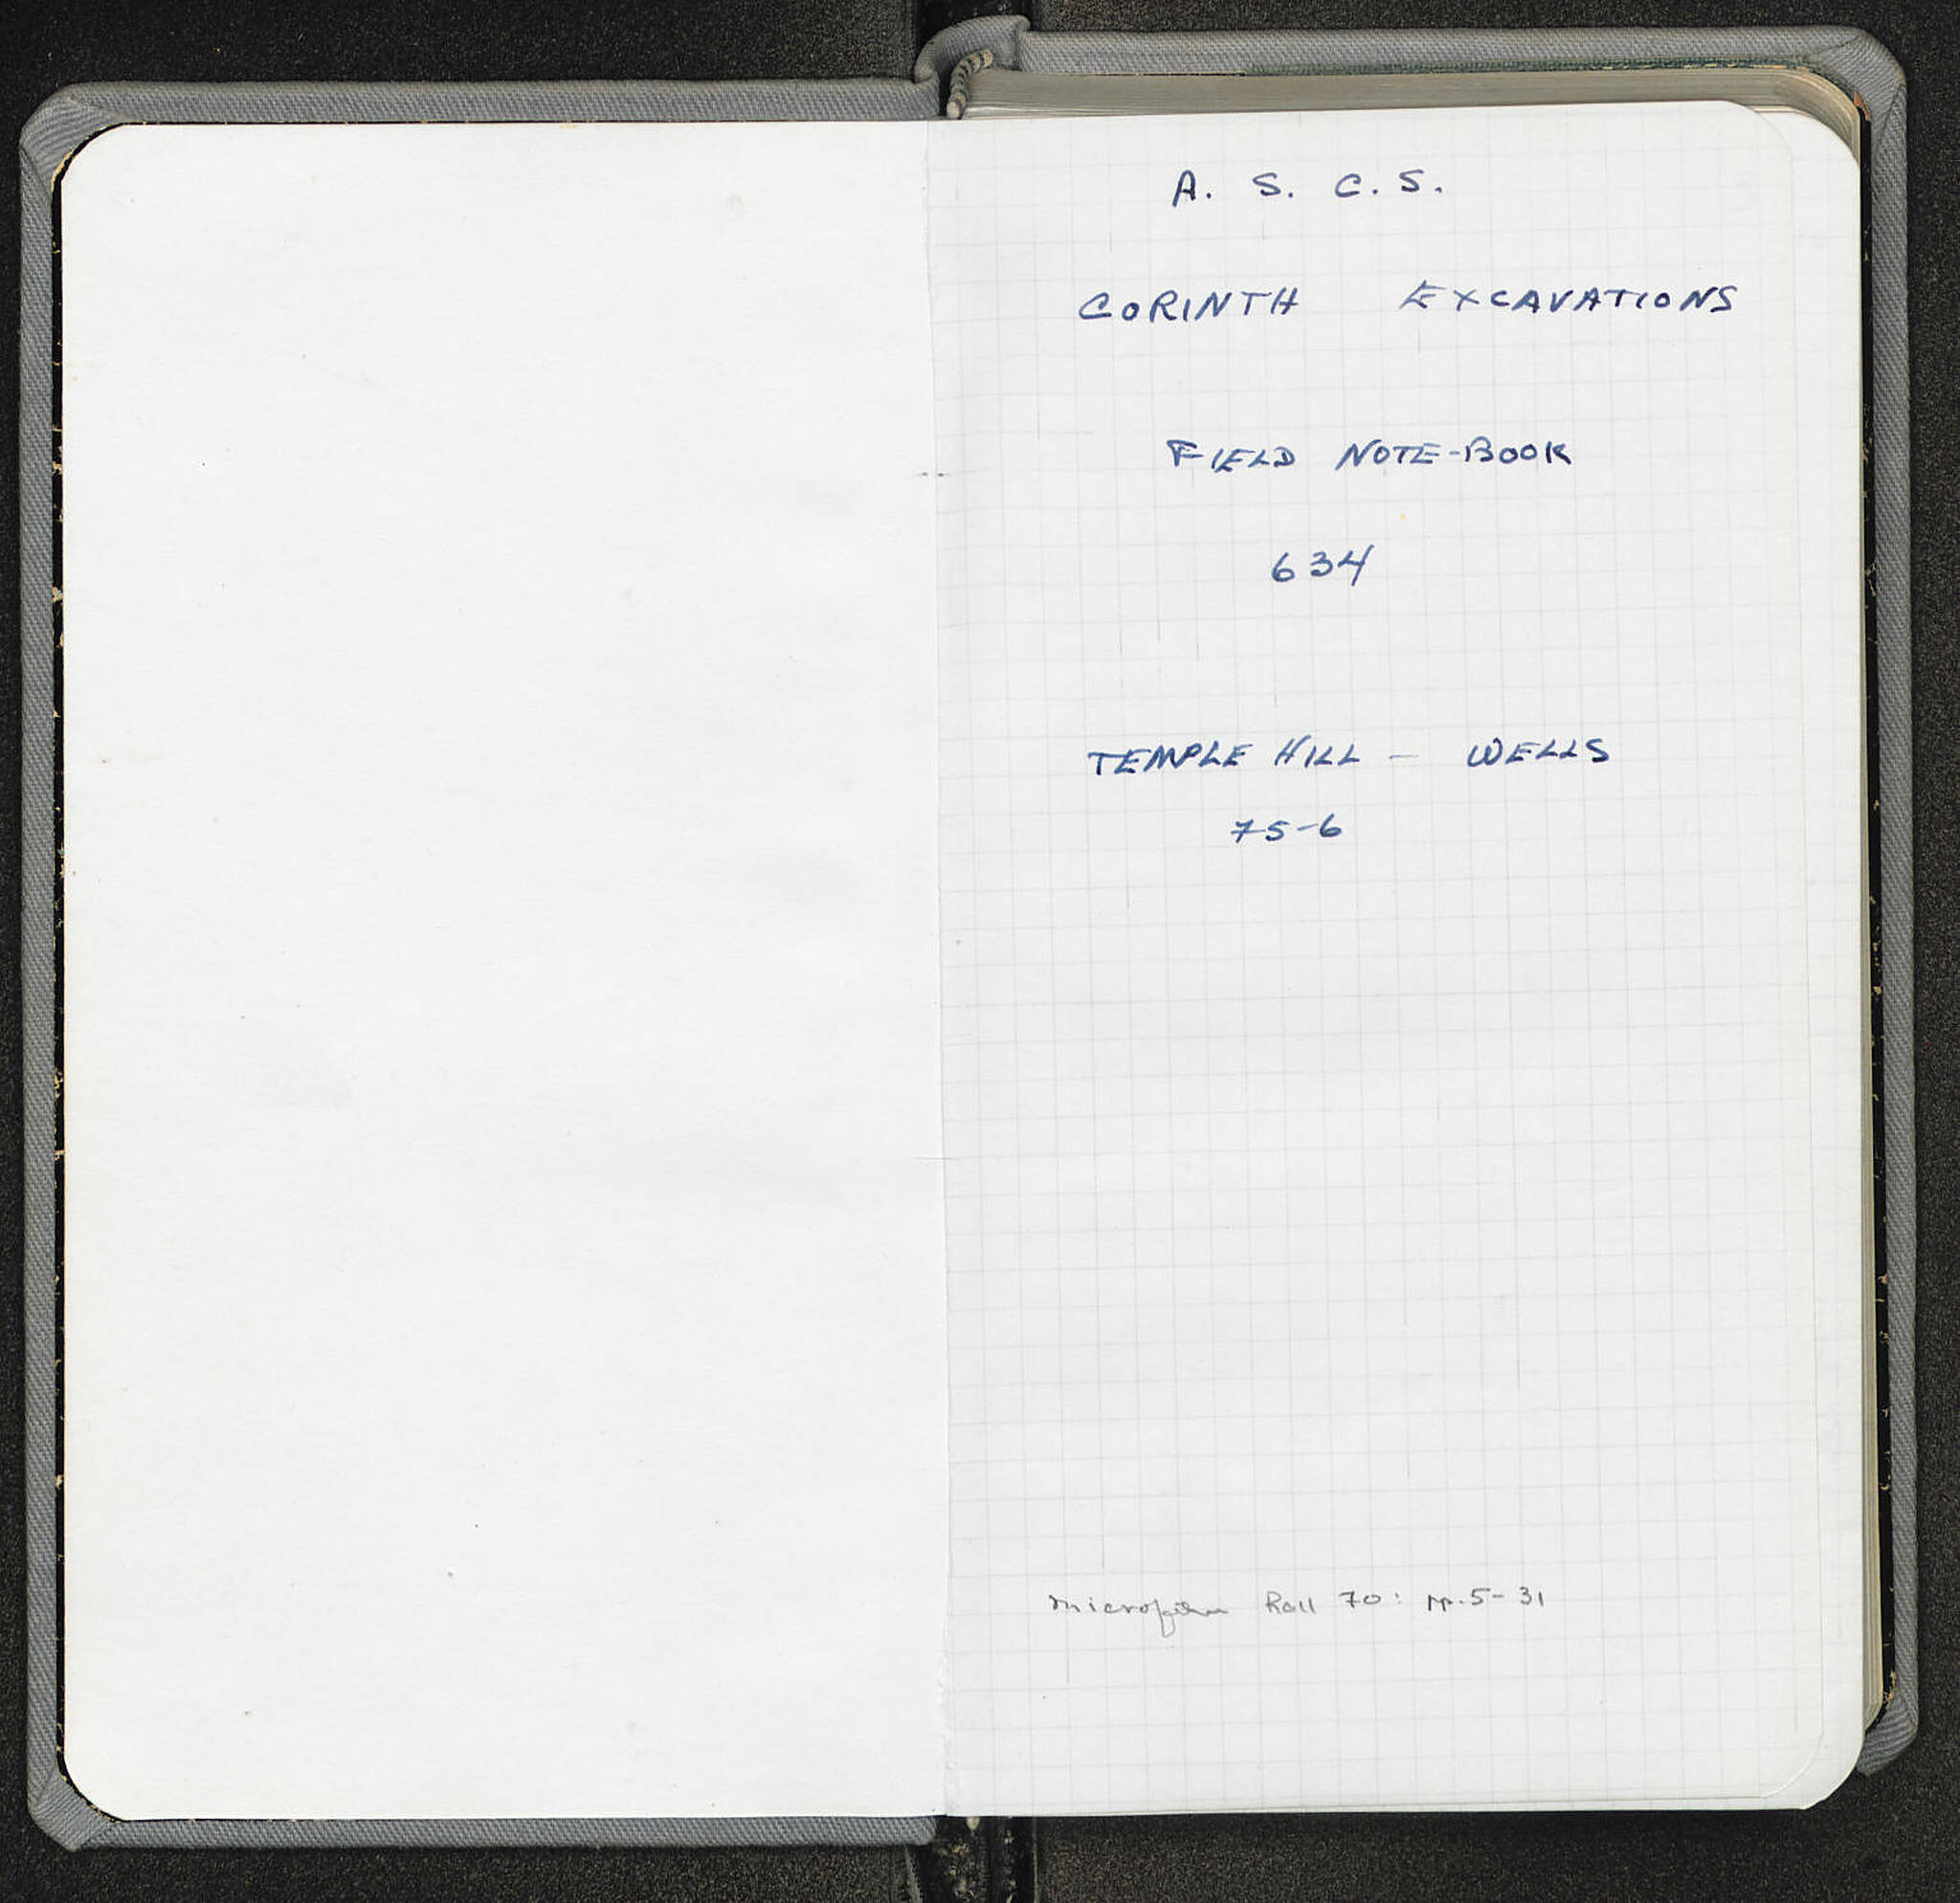 A. S. C. S.
CORINTH EXCAVATIONS
FIELD NOTE-BOOK
634
TEMPLE HILL - WELLS
75-6
Microfilm Roll 70: pp. 5-31